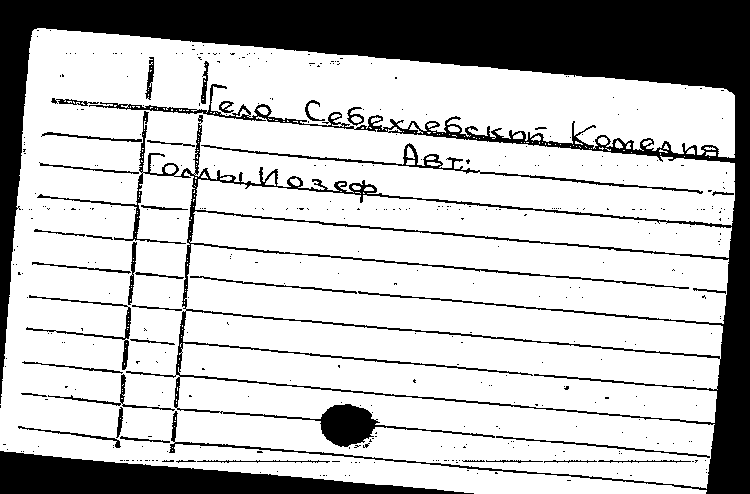 Гело Себехлебский Комедия
Авт:
Голлы, Иозеф